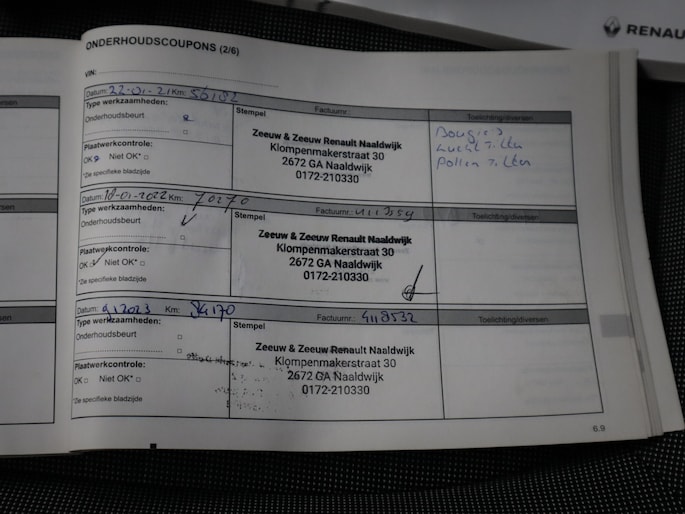 RENAU
ONDERHOUDSCOUPONS (2/6)
VIN:
Datum: 22-01-21 Km: 56182
Type werkzaamheden:
Stempel
Factuurnr.
Toelichting/diversen
Onderhoudsbeurt
Zeeuw & Zeeuw Renault Naaldwijk
Klompenmakerstraat 30
2672 GA Naaldwijk
0172-210330
Bougie's
Lucht Filter
Pollen Filter
Plaatwerkcontrole:
OK Niet OK*
*Zie specifieke bladzijde
Datum: 18-01-2022 Km: 70270
Type werkzaamheden:
Stempel
Factuurnr.
Toelichting/diversen
Onderhoudsbeurt
Zeeuw & Zeeuw Renault Naaldwijk
Klompenmakerstraat 30
2672 GA Naaldwijk
0172-210330
Plaatwerkcontrole:
OK Niet OK*
*Zie specifieke bladzijde
Datum: Km: 84170
Type werkzaamheden:
Stempel
Factuurnr.: 4118532
Toelichting/diversen
Onderhoudsbeurt
Zeeuw & Zeeuw Renault Naaldwijk
Klompenmakerstraat 30
2672 GA Naaldwijk
0172-210330
Plaatwerkcontrole:
OK Niet OK*
*Zie specifieke bladzijde
6.9